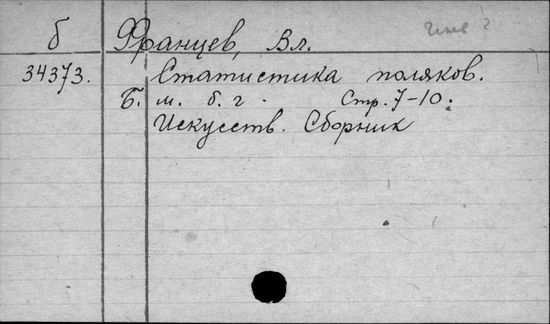 б Францев, Вл.
34373. Статистика поляков.
Б. м. б. г. Стр. 7-10.
Искусств. Сборник